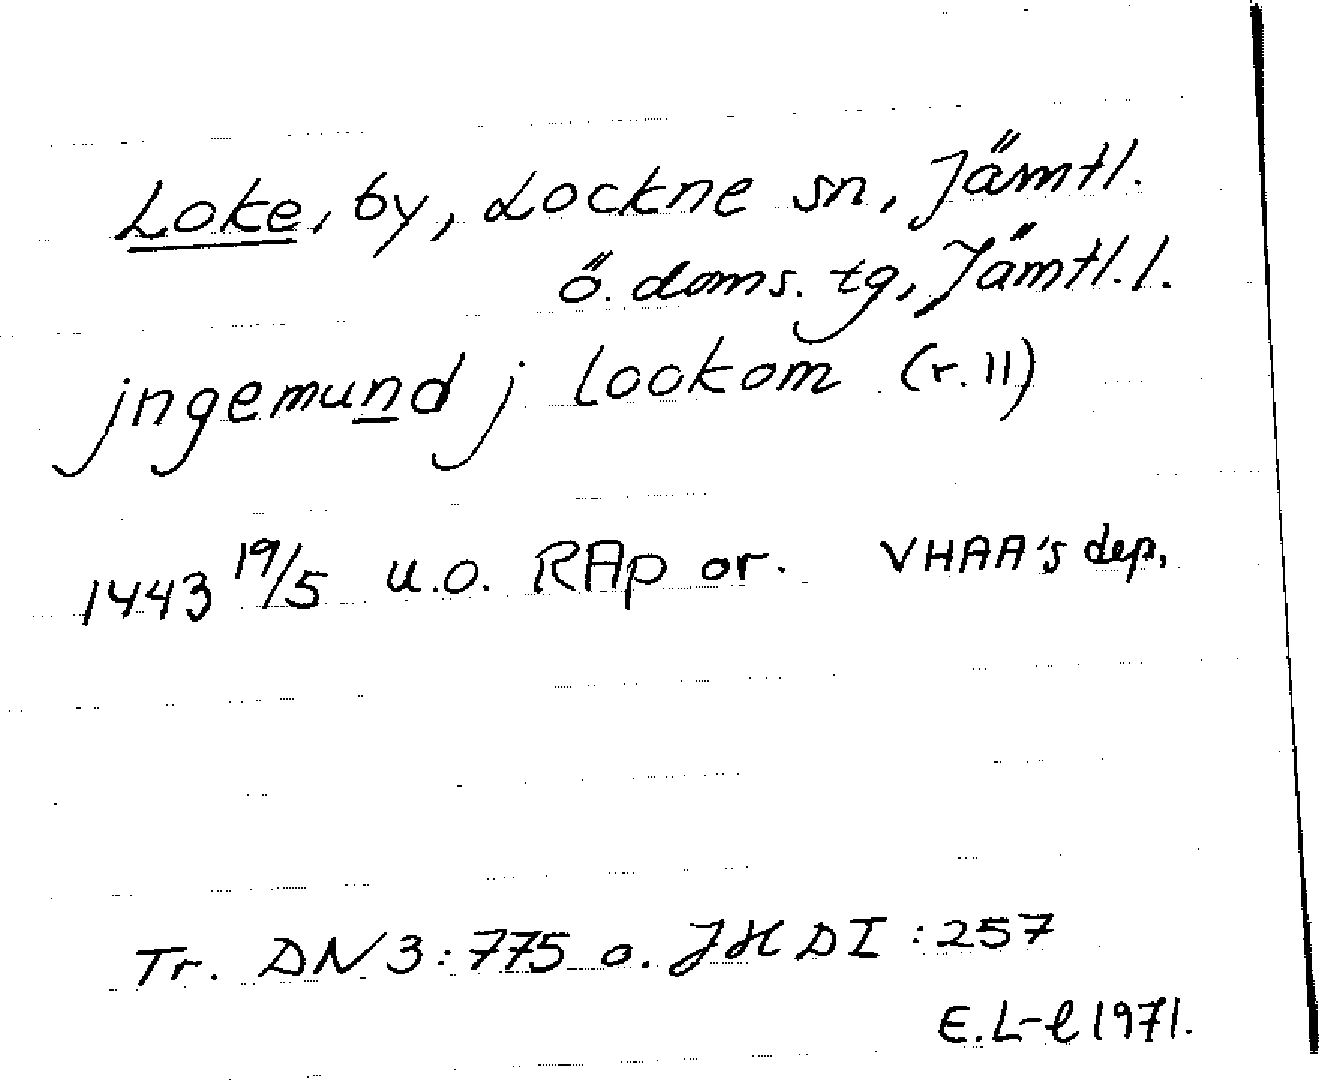 Loke, by, Lockne sn, Jämtl.
ö. doms. tg, Jämtl. l.
jngemund j Lookom (r. 11)
1443 19/5 u.o. RAp or. VHAA's dep.
Tr. DN 3:775 o. JHD I:257
E. L-l 1971.